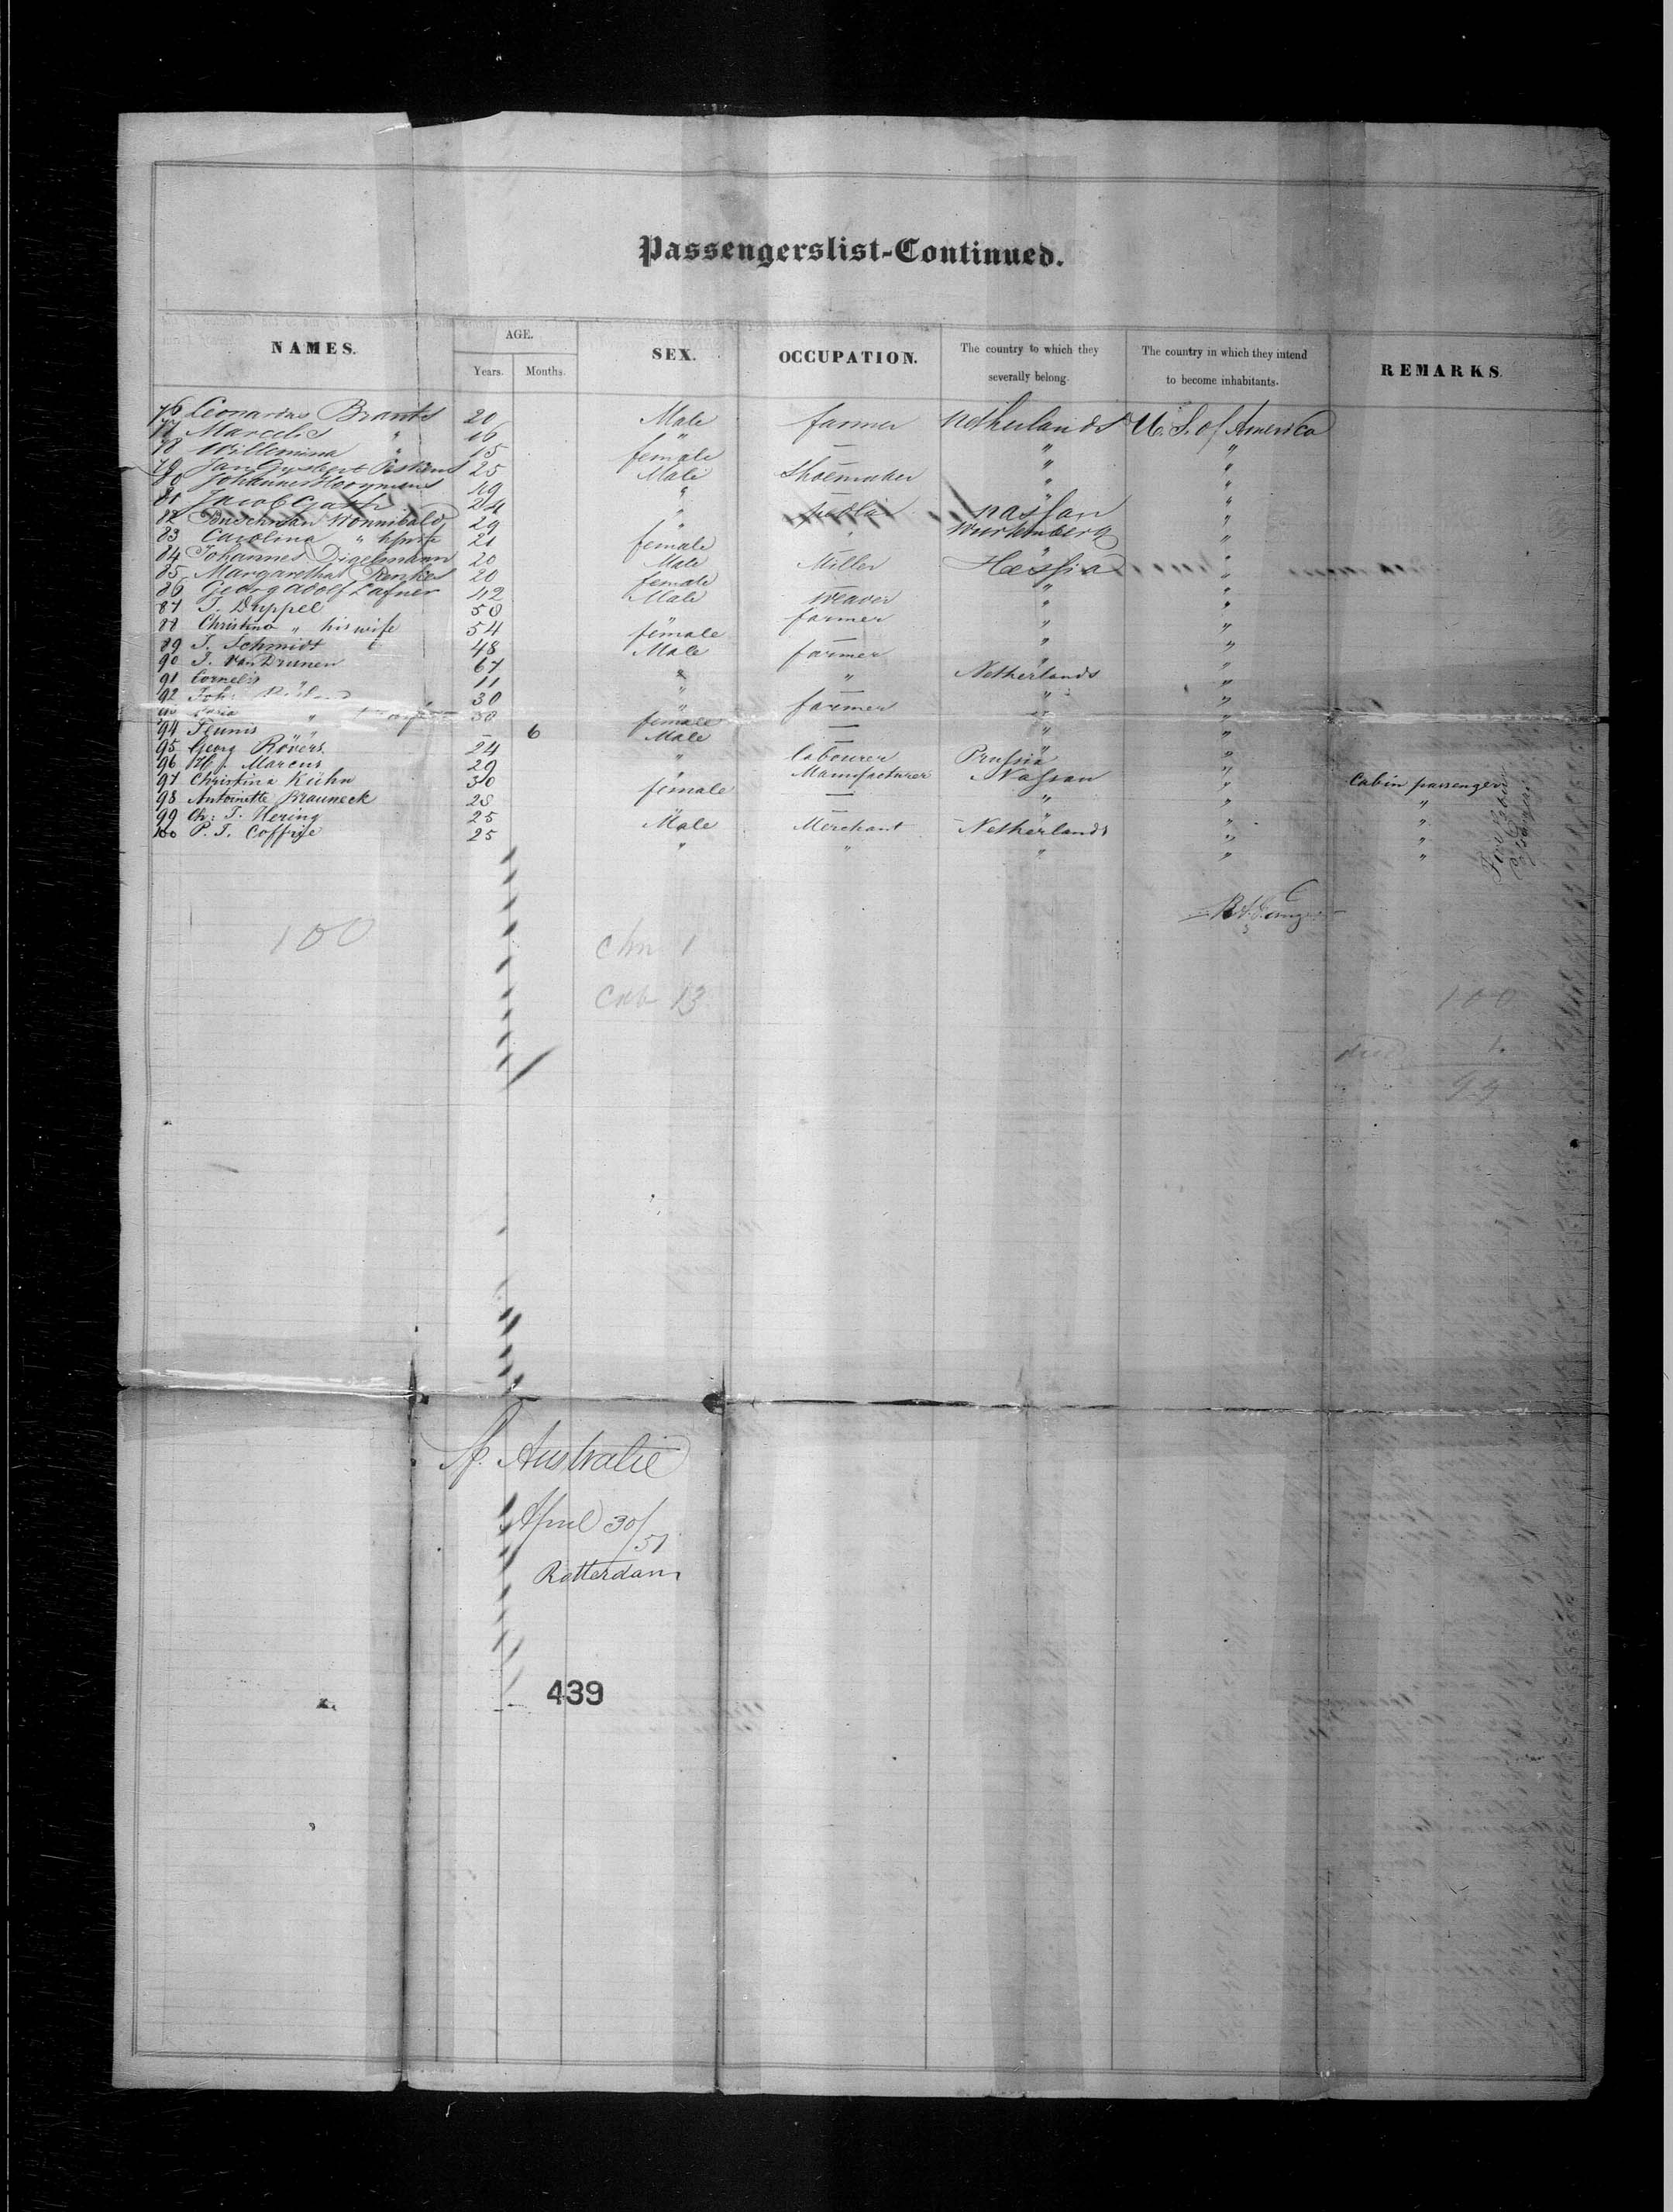 Passengerslist-Continued.
NAMES. AGE. SEX. OCCUPATION. The country to which they severally belong. The country in which they intend to become inhabitants. REMARKS.
Years. Months.
76 Leonardus Brants 20 Male farmer Netherlands U. S. of America
77 Marcelis " 16 " — " "
78 Willemina " 15 female — " "
79 Jan Gysbert 25 Male Shoemaker " "
80 Johannes Hooymans 49 " — " "
81 Jacob 24 " Nassau "
82 Buschman Wonnibald 29 " " Wurtemberg "
83 Carolina " 21 female — " "
84 Johannes Digelmann 20 Male Miller Hessia "
85 Margaretha 20 female — " "
86 Georg Adolf Lafner 42 Male Weaver " "
87 J. Duppel 58 " farmer " "
88 Christina " his wife 54 female — " "
89 J. Schmidt 48 Male farmer " "
90 J. van Drunen 67 " " Netherlands "
91 Cornelis 11 " — " "
92 Joh: 30 " farmer " "
93 Maria " wife 30 female — " "
94 Teunis " — 6 Male — " "
95 Georg Rövers 24 " labourer Prussia "
96 Marcus 29 " Manufacturer Nassau " Cabin passenger
97 Christina Kühn 30 female — " " "
98 Antoinette Brauneck 28 " — " " "
99 Ch: T. Hering 25 Male Merchant Netherlands " "
100 P. J. Coffrye 25 " " " " "
100
Chn 1
Cab 13
100
died 1
99
Sp. Australie
April 30/51
Rotterdam
439